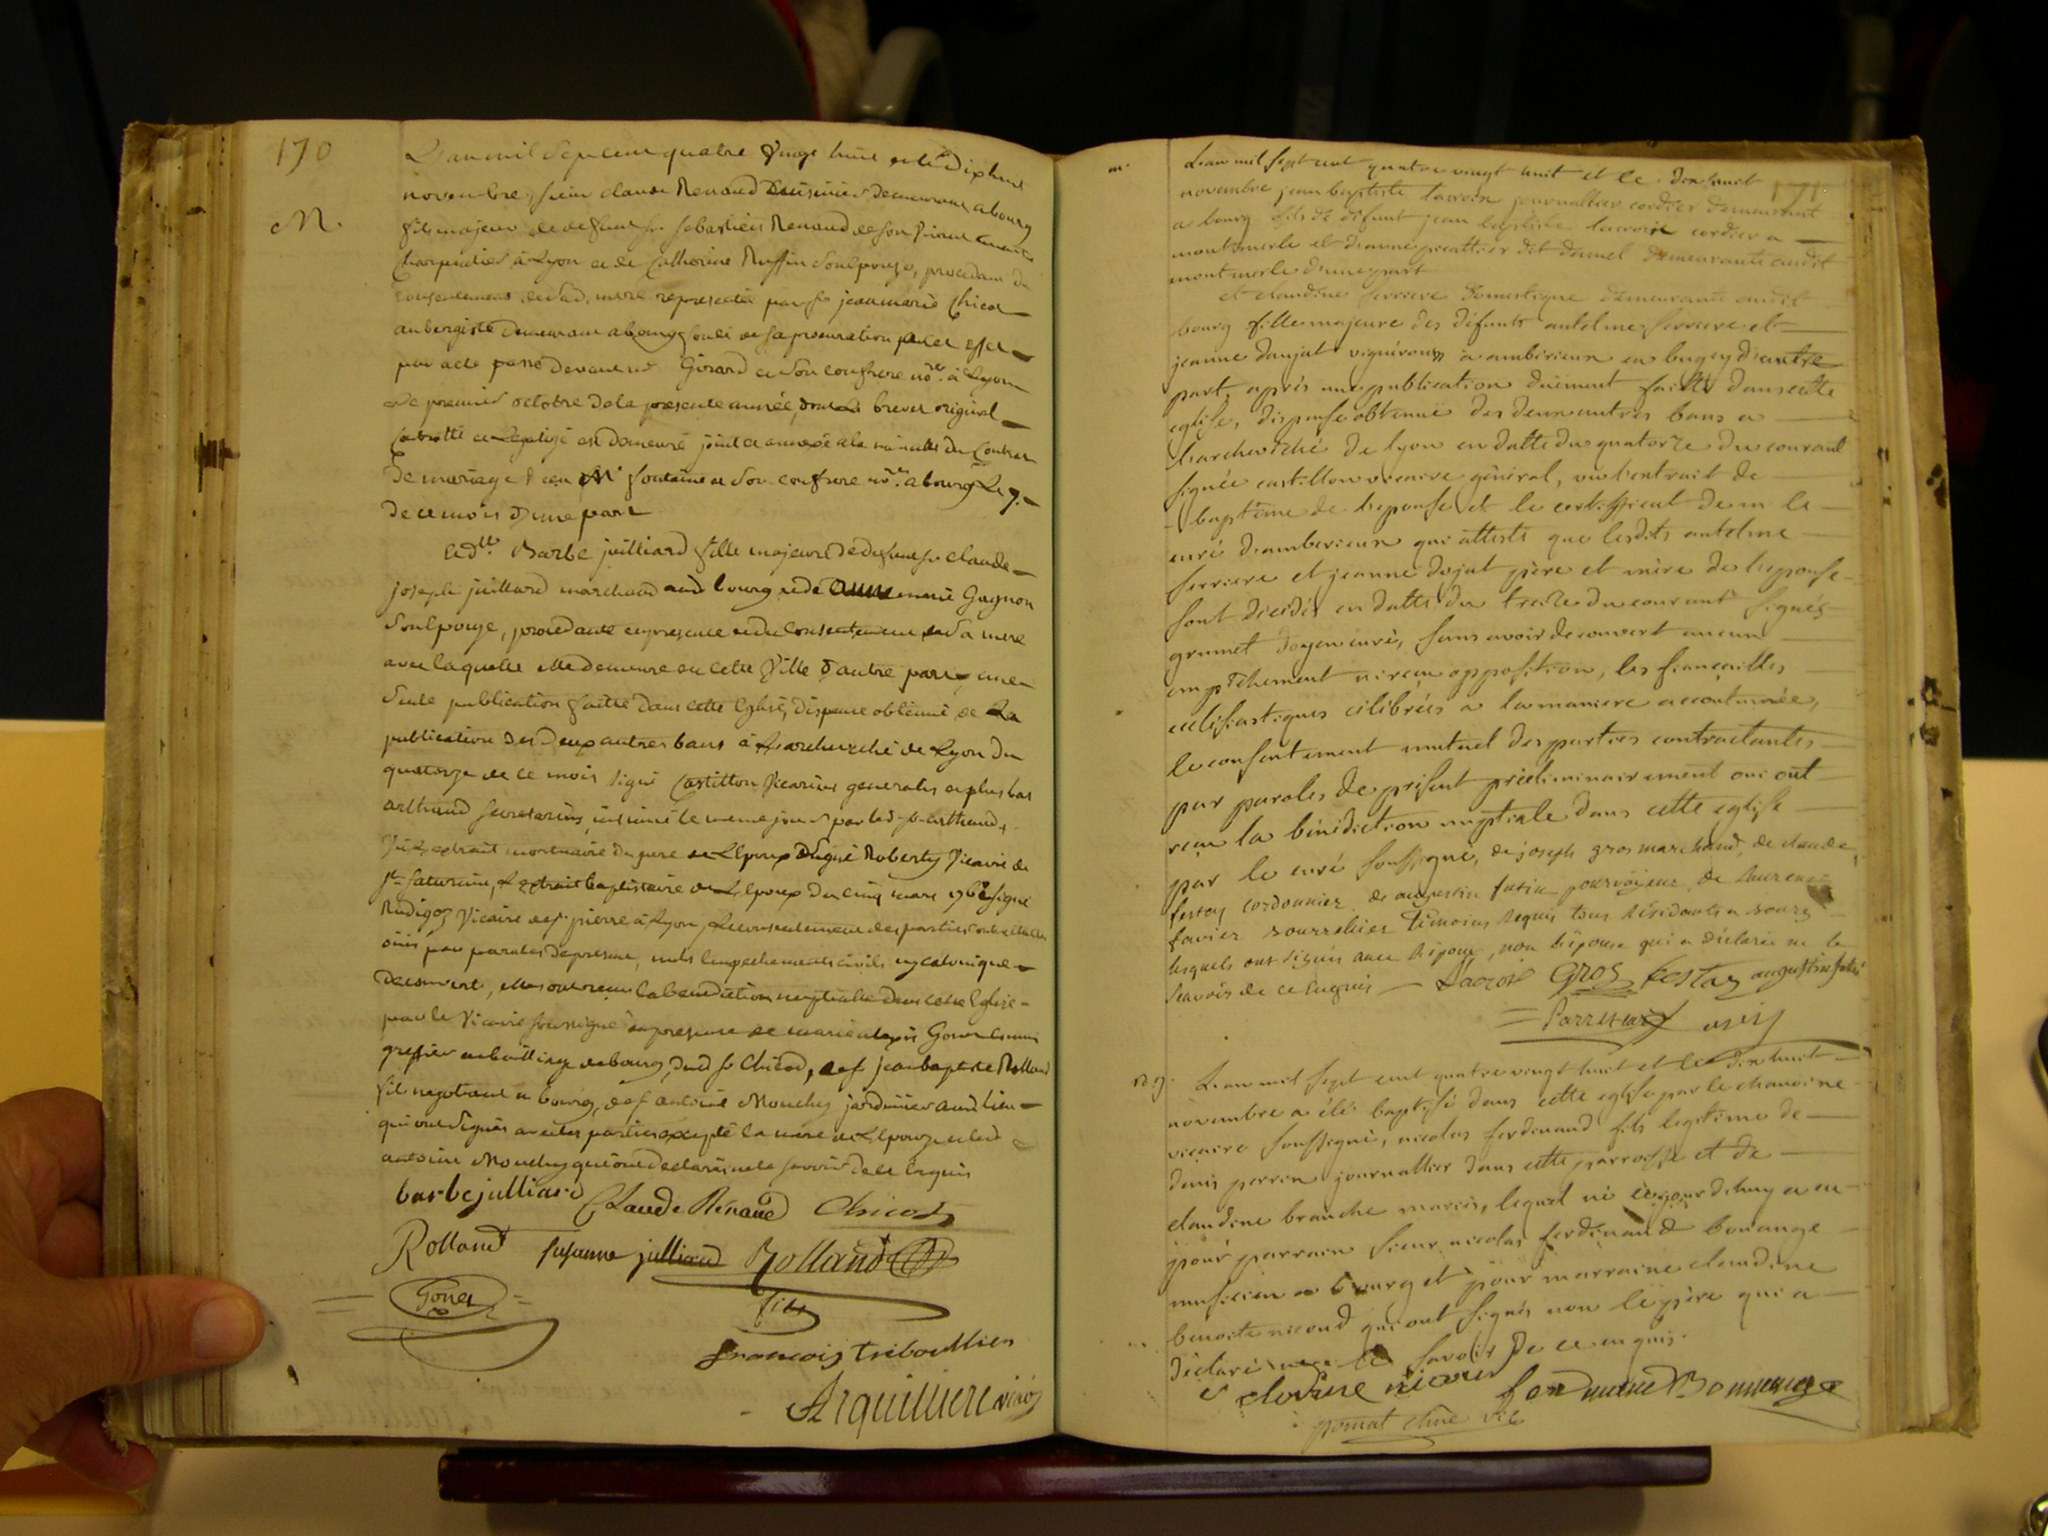 170
L'an mil sept cent quatre vingt huit et le dix huit
M.
novembre, sieur claude Renaud Cuisinier demeurant a bourg
fils majeur de defunt sr. sebastien Renaud de son vivant
charpentier à Lyon et de Catherine Ruffin son epouse, procedant du
consentement de sad. mere representée par sr jean marie Chicod
aubergiste demeurant a bourg fondé de sa procuration
par acte passé devant me Girard et son confrere nores à Lyon
le premier octobre de la presente année, brevet original
Controllé et Legalisé est demeuré joint et annexé a la minute du Contrat
de mariage Me fontaine et son confrere nores a bourg Le 7.
de ce mois d'une part
Et dlle Barbe juilliard fille majeure de defunt sr claude
joseph juilliard marchand aud bourg et de marie Gagnon
son epouse, procedante en presence et du consentement de sa mere
avec laquelle elle demeure en cette ville d'autre part, une
seule publication faitte dans cette Eglise, dispense obtenuë de La
publication des deux autres bans à L'archevêché de Lyon du
quatorze de ce mois signé Castillon vicarius generalis et plus bas
arthaud secretarius, insinué le meme jour par led sr arthaud,
extrait mortuaire du pere de L'epoux signé Roberty vicaire de
st saturnin, L'extrait baptistaire de L'epoux du cinq mars signé
Rudigoz vicaire de st. pierre à Lyon, Le consentement des parties contractantes
ouis par paroles de present, nuls empechements civils ny canonique
decouvert, elles ont reçu la benediction nuptiale dans cette Eglise
par le vicaire soussigné en presence de marie alexis
greffier au bailliage de bourg, dud sr Chicod, de sr jean baptiste Rolland
fils negotiant a bourg, de sr antoine Mouchy jardinier aud lieu
qui ont signés avec les parties excepté la mere de L'epouze et led
antoine Mouchy qui ont declarés ne le savoir de ce enquis
barbe julliard Claude Renaud Chicod
Rolland susanne julliard Rolland
Goner fils
francois tribouillier
Arquilliere vicre
171
m. L'an mil sept cent quatre vingt huit et le dix huit
novembre jean baptiste lacroix journallier cordier demeurant
a bourg fils de défunt jean baptiste lacroix cordier a
montmerle et dit demeurante audit
montmerle d'une part
et claudine ferriere domestique demeurante audit
bourg fille majeure des défunts antelme ferriere et
jeanne dujat vignérons à ambérieux en bugey d'autre
part, après une publication duëment faitte dans cette
eglise, dispense obtenuë des deux autres bans a
l'archevêché de lyon en datte du quatorze du courant
signée castillon vicaire général, vu l'extrait de
baptême de l'epouse et le certifficat de m le
curé d'amberieux qui atteste que lesdits antelme
ferriere et jeanne dujat père et mère de l'epouse
sont décédés en datte du treize du courant signés
grumet doyen curé, sans avoir decouvert aucun
empêchement ni reçu opposition, les fiançailles
ecclésiastiques célébrées a la maniere accoutumée,
le consentement mutuel des parties contractantes
par paroles de présent préliminairement oui ont
reçu la bénédiction nuptiale dans cette eglise
par le curé soussigné, de joseph gros marchand, de claude
festaz cordonnier de augustin pourvoyeur de laurent
favier bourrelier témoins requis tous résidants a bourg
lesquels ont signés avec l'époux, non l'épouse qui a déclaré ne le
scavoir de ce enquis Lacroix Gros festaz augustin
L'an mil sept cent quatre vingt huit et le dix huit
novembre a été baptisé dans cette eglise par le chanoine
vicaire soussigné, nicolas ferdinand fils legitime de
denis perrin journallier dans cette parroisse et de
claudine branche mariés, lequel né ce jourdhuy a eu
pour parrain sieur nicolas ferdinand bonange
musicien a bourg et pour marraine claudine
benoite nicoud qui ont signés non le père qui a
déclaré ne le savoir de ce enquis.
claudine nicoud ferdinand Bonange